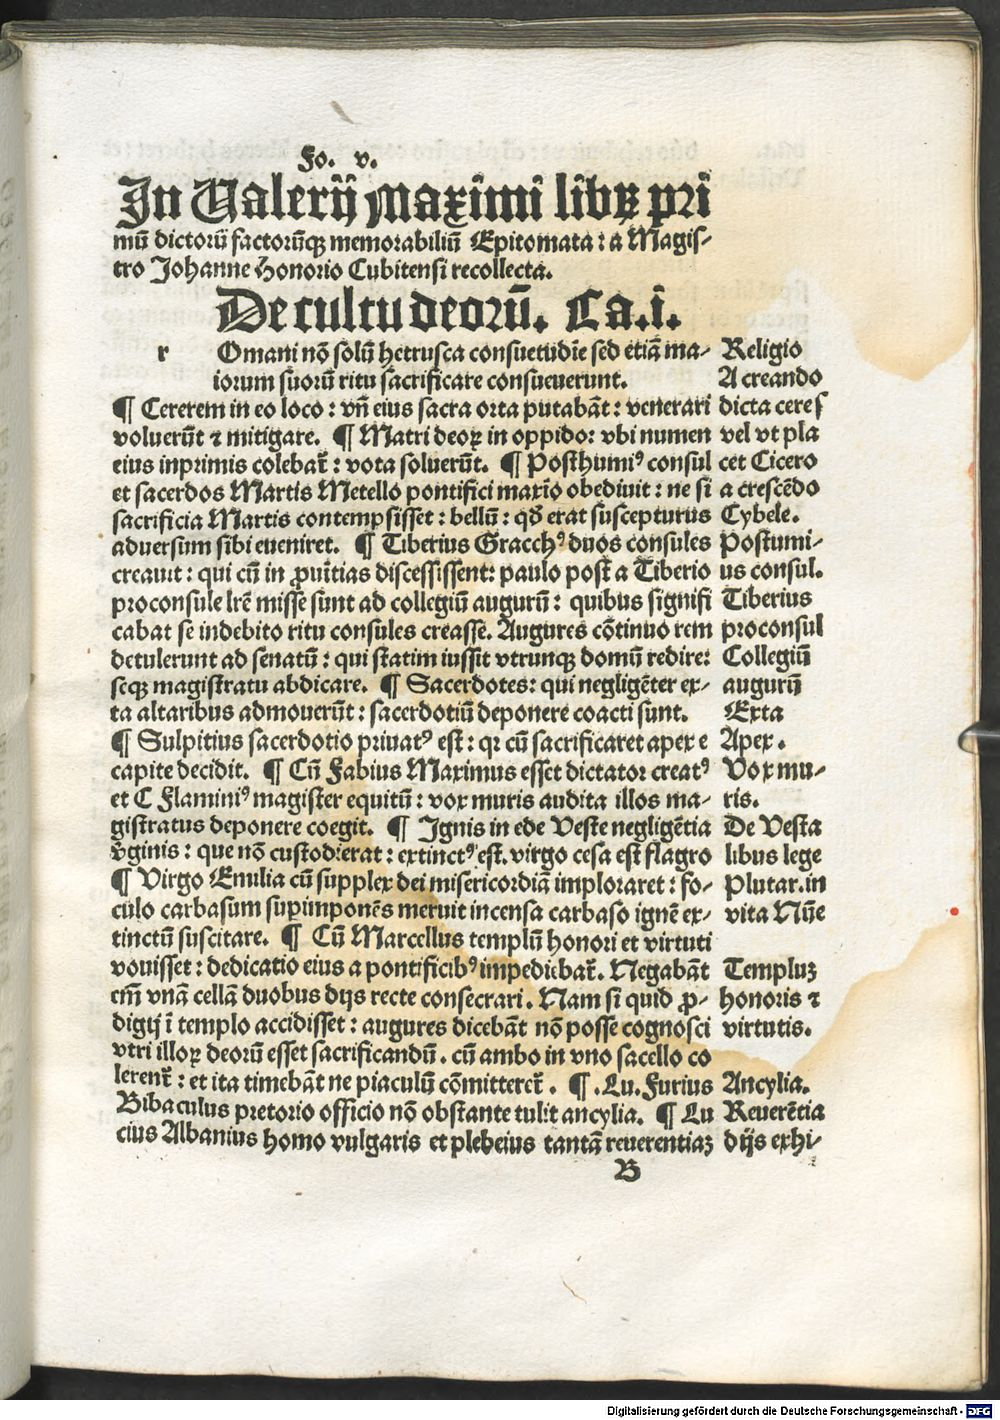 Fo. v.
In Ualerij Maximi libꝝ pri
mū dictorū factorūqꝫ memorabiliū Epitomata: a Magis-
tro Johanne Honorio Cubitensi recollecta.
De cultu deorū. Ca.i.
r Omani nō solū hetrusca consuetudīe sed etiā ma-
iorum suorū ritu sacrificare consueuerunt.
¶ Cererem in eo loco: vn̄ eius sacra orta putabāt: venerari
voluerūt ⁊ mitigare. ¶ Matri deoꝝ in oppido: vbi numen
eius inprimis colebat̄: vota soluerūt. ¶ Posthumiꝰ consul
et sacerdos Martis Metello pontifici maxīo obediuit: ne si
sacrificia Martis contempsisset: bellū: qd̄ erat suscepturus
aduersum sibi eueniret. ¶ Tiberius Gracchꝰ duos consules
creauit: qui cū in ꝓuītias discessissent: paulo post a Tiberio
proconsule lr̄e misse sunt ad collegiū augurū: quibus signifi
cabat se indebito ritu consules creasse. Augures cōtinuo rem
detulerunt ad senatū: qui statim iussit vtrunqꝫ domū redire:
seqꝫ magistratu abdicare. ¶ Sacerdotes: qui negligēter ex-
ta altaribus admouerūt: sacerdotiū deponere coacti sunt.
¶ Sulpitius sacerdotio priuatꝰ est: qꝛ cū sacrificaret apex e
capite decidit. ¶ Cū Fabius Maximus esset dictator creatꝰ
et C Flaminiꝰ magister equitū: vox muris audita illos ma-
gistratus deponere coegit. ¶ Ignis in ede Veste negligētia
v̄ginis: que nō custodierat: extinctꝰ est. virgo cesa est flagro
¶ Virgo Emilia cū supplex dei misericordiā imploraret: fo-
culo carbasum superimponēs meruit incensa carbaso ignē ex-
tinctū suscitare. ¶ Cū Marcellus templū honori et virtuti
vouisset: dedicatio eius a pontificibꝰ impediebat̄. Negabāt
em̄ vnā cellā duobus dijs recte consecrari. Nam si quid ꝓ-
digij ī templo accidisset: augures dicebāt nō posse cognosci
vtri illoꝝ deorū esset sacrificandū. cū ambo in vno sacello co
lerent̄: et ita timebāt ne piaculū cōmitteret̄. ¶ .Lu. Furius
Bibaculus pretorio officio nō obstante tulit ancylia. ¶ Lu
cius Albanius homo vulgaris et plebeius tantā reuerentiaꝫ
B
Religio
A creando
dicta ceres
vel vt pla
cet Cicero
a crescēdo
Cybele.
Postumi-
us consul.
Tiberius
proconsul
Collegiū
augurū
Exta
Apex.
Vox mu-
ris.
De Vesta
libus lege
Plutar. in
vita Nūe
Templuꝫ
honoris ⁊
virtutis.
Ancylia.
Reuerētia
dijs exhi-
Digitalisierung gefördert durch die Deutsche Forschungsgemeinschaft - DFG